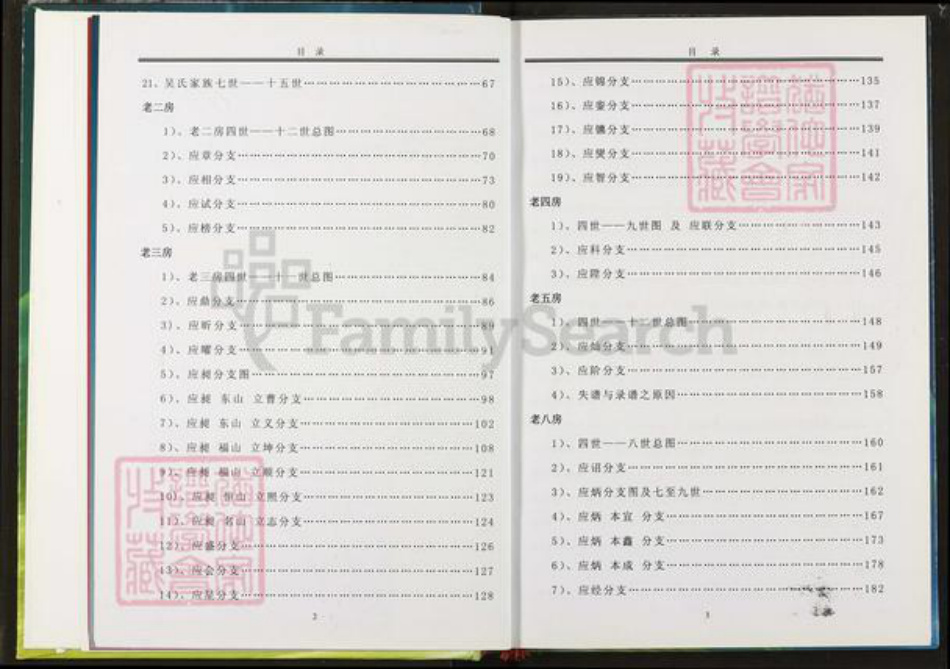 目 录
21、吴氏家族七世——十五世………67
老二房
1)、老二房四世——十二世总图………68
2)、应章分支………70
3)、应相分支………73
4)、应试分支………80
5)、应榜分支………82
老三房
1)、老三房四世——十一世总图………84
2)、应鼎分支………86
3)、应昕分支………89
4)、应曜分支………91
5)、应昶分支图………97
6)、应昶 东山 立曹分支………98
7)、应昶 东山 立义分支………102
8)、应昶 福山 立坤分支………108
9)、应昶 福山 立顺分支………121
10)、应昶 恒山 立熙分支………123
11)、应昶 名山 立志分支………124
12)、应盛分支………126
13)、应会分支………127
14)、应星分支………128
2
目 录
15)、应锡分支………135
16)、应銮分支………137
17)、应分支………139
18)、应燮分支………141
19)、应智分支………142
老四房
1)、四世——九世图 及 应联分支………143
2)、应科分支………145
3)、应陞分支………146
老五房
1)、四世——十二世总图………148
2)、应灿分支………149
3)、应阶分支………157
4)、失谱与录谱之原因………158
老八房
1)、四世——八世总图………160
2)、应诏分支………161
3)、应炳分支图及七至九世………162
4)、应炳 本宣 分支………167
5)、应炳 本鑫 分支………173
6)、应炳 本成 分支………178
7)、应经分支………182
3
FamilySearch